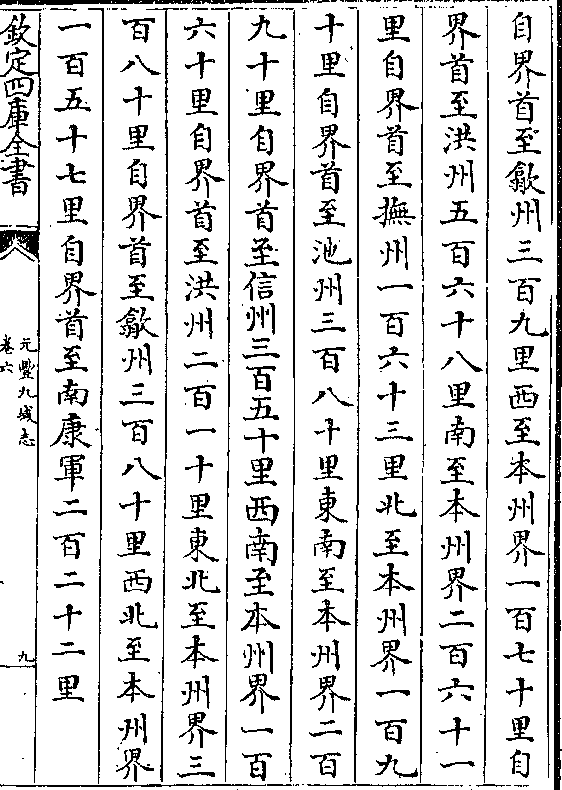 自界首至歙州三百九里西至本州界一百七十里自
界首至洪州五百六十八里南至本州界二百六十一
里自界首至撫州一百六十三里北至本州界一百九
十里自界首至池州三百八十里東南至本州界二百
九十里自界首至信州三百五十里西南至本州界一百
六十里自界首至洪州二百一十里東北至本州界三
百八十里自界首至歙州三百八十里西北至本州界
一百五十七里自界首至南康軍二百二十二里
欽定四庫全書
元豐九域志
卷六
九